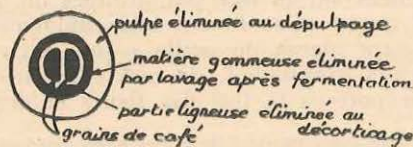 pulpe éliminée au dépulpage
matière gommeuse éliminée
par lavage après fermentation
partie ligneuse éliminée au
décorticage
grains de café